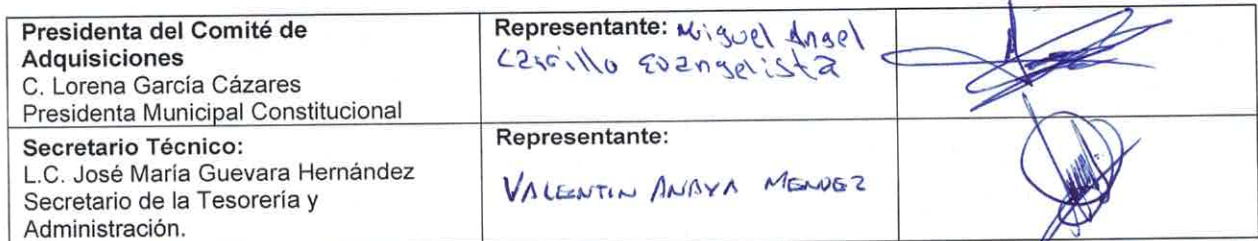 Presidenta del Comité de
Adquisiciones
C. Lorena García Cázares
Presidenta Municipal Constitucional
Representante: Miguel Angel
Carrillo Evangelista
Secretario Técnico:
L.C. José María Guevara Hernández
Secretario de la Tesorería y
Administración.
Representante:
VALENTIN ANAYA MENDEZ